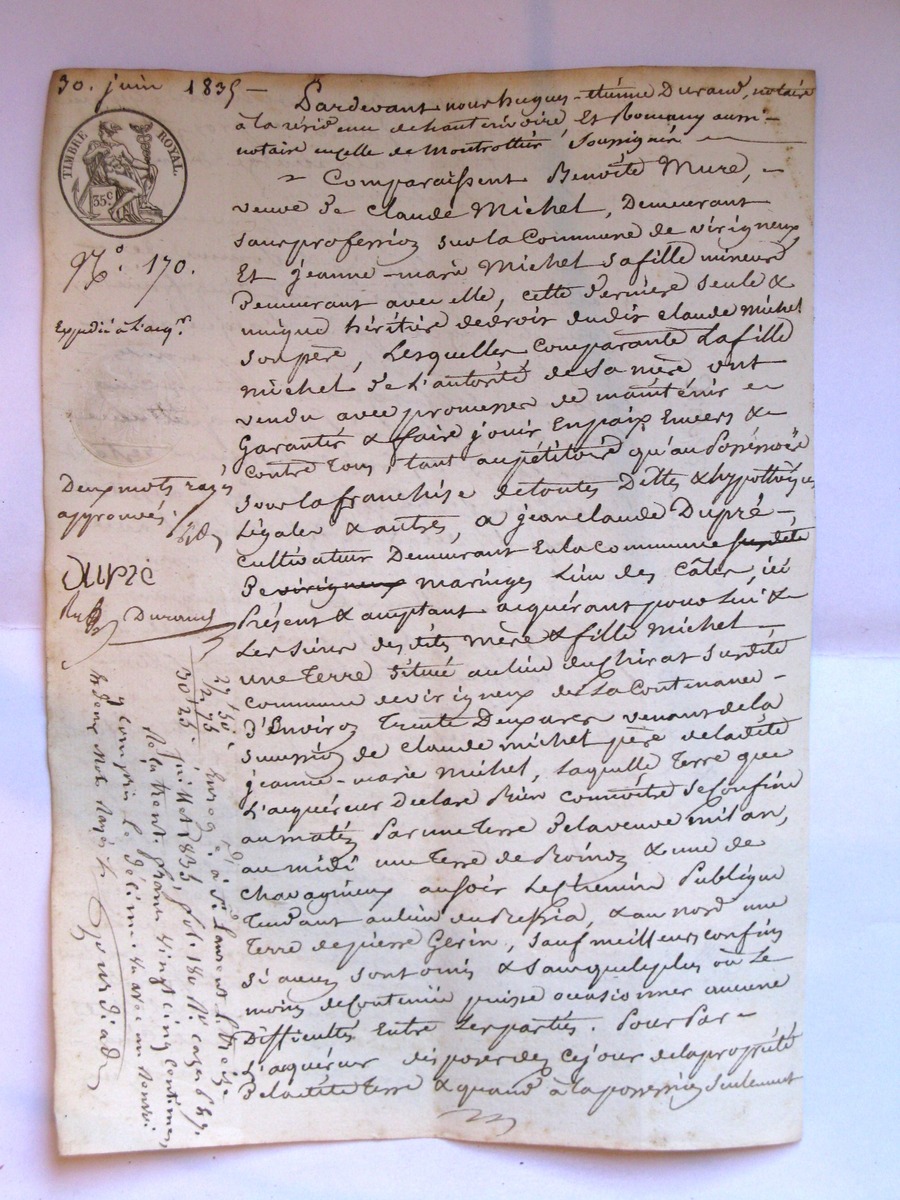 30. juin 1835 —
Pardevant nous hugues-étienne Durand, notaire
à la résidence de hauterivoire, Et Romany aussi
notaire en celle de Montrottier, Soussignés —
Comparaissent Benoîte Mure, –
veuve de Claude Michel, Demeurant
sans profession sur la Commune de virigneux
Et jeanne-marie Michel sa fille mineure
Demeurant avec elle, cette dernière seule &
unique héritière de droit dudit claude michel
son père, Lesquelles Comparante La fille
michel de L'autorité de Sa mère ont
vendu avec promesses de maintenir
Garantir & faire jouir En paix Envers &
Contre Tous, tant au pétitoire qu'au Possessoire
sous la franchise de toutes Dettes & hypothèques
Légales & autres, a jean claude Dupré –
Cultivateur Demeurant En la Commune susdite
De virigneux maringes Lieu des Câtes, ici
Présent & acceptant acquérant pour Lui &
Les Siens desdites mère & fille Michel —
une Terre Située au lieu du Chirat susdite
Commune de virigneux de La Contenance –
D'Environ Trente Deux ares venant de la
Succession de Claude michel père de ladite
jeanne-marie Michel, Laquelle Terre que
L'acquéreur Declare Bien Connoître se Confine
au matin Par une Terre De la veuve milan,
au midi une Terre de Poinoz & une de
Chavagneux au soir Le Chemin Publique
Tendant au lieu du Ressia, & au nord une
Terre de pierre Gerin, Sauf meilleurs confins
Si aucuns sont omis & Sans que le plus ou Le
moins de Contenue puisse occasionner aucune
Difficultés Entre Les parties. Pour Par –
L'acquéreur disposer dès Ce jour de la propriété
De ladite Terre & quand à la possession seulement
TIMBRE ROYAL
35c
No. 170.
Expédié à L'acqr.
Deux mots rayés
approuvés.
Dupré
Durand
27 50
2 75
30 25
Enregé. à St. Laurent le trois
juillet 1835, fol. 180
trente francs vingt cinq centimes,
y compris le décime